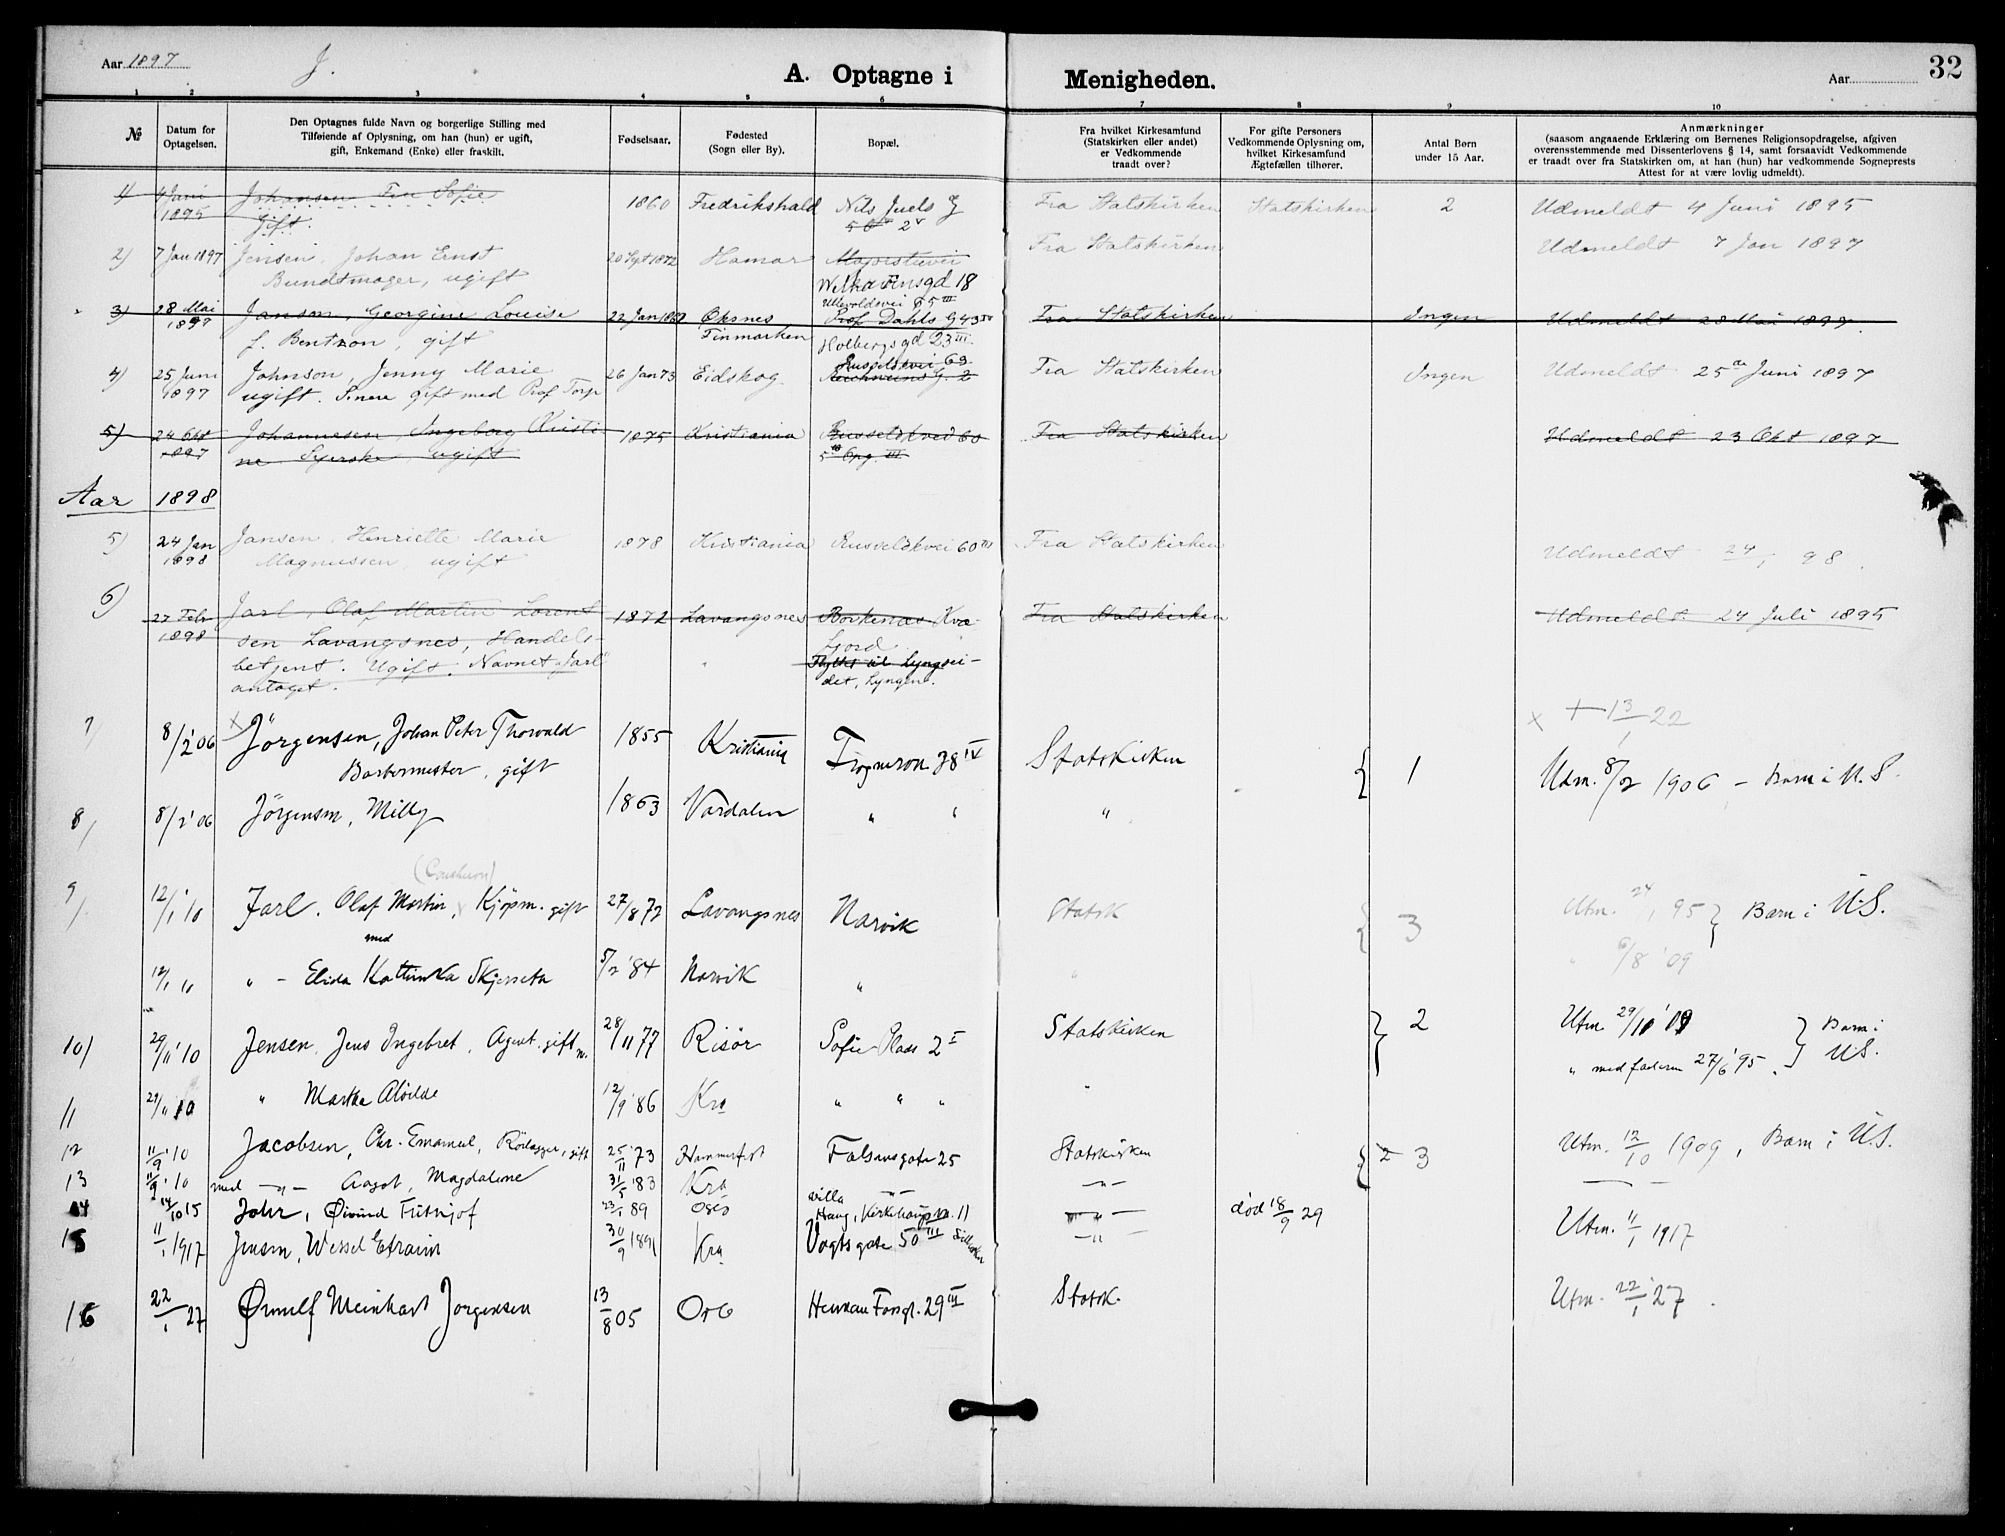 Aar 1897 J. A. Optagne i Menigheden. Aar 32
1 2 3 4 5 6 7 8 9 10
№
Datum for
Optagelsen.
Den Optagnes fulde Navn og borgerlige Stilling med
Tilføiende af Oplysning, om han (hun) er ugift,
gift, Enkemand (Enke) eller fraskilt.
Fødselsaar.
Fødested
(Sogn eller By).
Bopæl.
Fra hvilket Kirkesamfund
(Statskirken eller andet)
er Vedkommende
traadt over?
For gifte Personers
Vedkommende Oplysning om,
hvilket Kirkesamfund
Ægtefællen tilhører.
Antal Børn
under 15 Aar.
Anmærkninger
(saasom angaaende Erklæring om Børnenes Religionsopdragelse, afgiven
overensstemmende med Dissenterlovens § 14, samt forsaavidt Vedkommende
er traadt over fra Statskirken om, at han (hun) har vedkommende Sogneprests
Attest for at være lovlig udmeldt).
1) 4 Juni Johansen Fru Sofie 1860 Fredrikshald Nils Juels G Fra Statskirken Statskirken 2 Udmeldt 4 Juni 1895
1895 gift.
2) 7 Jan 1897 Jensen, Johan Ernst 20 Sept 1872 Hamar Majorstuvei Fra Statskirken Udmeldt 7 Jan 1897
Bundtmager, ugift Welhavensgd 18
Ullevoldsvei 85 III
3) 28 Mai Janson, Georgine Louise 22 Jan Øksnes Prof Dahls G 43 IV Fra Statskirken Ingen Udmeldt 28 Mai 1897.
1897 f. Bentzon, gift Finmarken Holbergs gd 23 III.
Russeløkvei 69
4) 25 Juni Johnson, Jenny Marie 26 Jan 73 Eidskog Reichweins G. 2 Fra Statskirken Ingen Udmeldt 25 de Juni 1897
1897 ugift. Senere gift med Prof Torp
5) 24 Okt Johannesen, Ingeborg Kristi- 1875 Kristiania Russeløkvei 60 Fra Statskirken Udmeldt 23 Okt 1897
1897 ne Syerske ugift 5 Opg. III.
Aar 1898
5) 24 Jan Jansen, Henriette Marie 1878 Kristiania Russeløkvei 60 III Fra Statskirken Udmeldt 24/1 98.
1898 Magnussen, ugift
6) 27 Febr Jarl, Olaf Martin Lorent- 1872 Lavangsnes Borkenæs Kvæ- Fra Statskirken Udmeldt 24 Juli 1895
1898 sen Lavangsnes, Handels- fjord
betjent. Ugift. Navnet "Jarl" Flyttet til Lyngsei-
antaget. det, Lyngen.
7) 8/2 '06 x Jörgensen, Johan Peter Thorvald 1855 Kristiania Frognerson 38 IV Statskirken { 1 x + 13/1 22
Barbermester, gift Utm. 8/2 1906 – Barn i U. S.
8) 8/2 '06 Jörgensen, Milly 1863 Værdalen " " "
9) 12/1 '10 Jarl. Olaf Martin, Kjöpm. gift 27/8 72 Lavangsnes Narvik Statsk { 3 Utm. 24/1 95 } Barn i U.S.
med
12/1 10 " – Elida Kattinka Skjerseth 5/2 '84 Narvik " " " 6/8 '09
10) 29/11 '10 Jensen. Jens Ingebret. Agent. gift m. 28/11 77 Risör Sofie Plads 2 I Statskirken } 2 Utm. 29/10 '09 } Barn i
" med faderen 27/6 '95. U.S.
11 29/11 10 " Martha Alvilde 12/9 '86 Kra " " " "
12 11/9 '10 Jacobsen, Chr. Emanuel, Rörlægger, gift 25/11 '73 Hammerfest Falsensgate 25 Statskirken { 2 3 Utm. 12/10 1909, Barn i U.S.
13 11/9 '10 med –"– Aagot, Magdalene 31/5 '83 Kra –"– –"–
14 14/10 15 Johr, Øivind Frithjof 23/1 89 Oslo villa Haug, Kirkehaugsv. 11 –"– død 18/9 29
15 11/1 1917 Jensen, Wessel Efraim 30/9 1891 Kra. Vogtsgate 50 III –"– Utm. 11/1 1917
16 22/1 27 Ørnulf Meinhart Jorgensen 13/8 05 Oslo Herman Fossgt. 29 III Statsk. Utm. 22/1 '27.